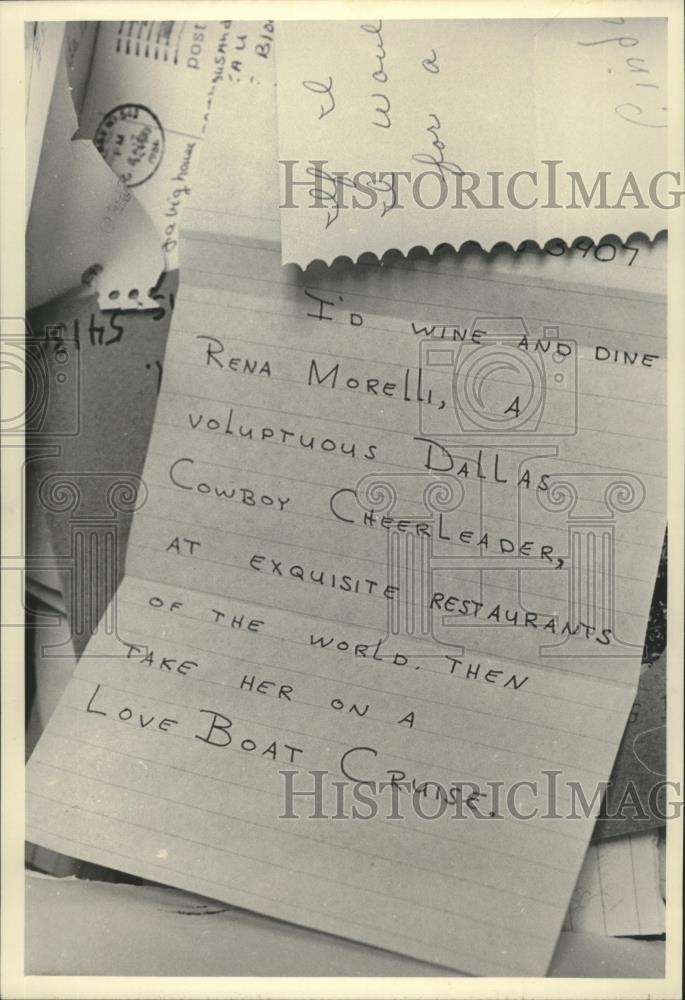 post
If I
I would
for a
I'D WINE AND DINE
RENA MORELLI, A
VOLUPTUOUS DALLAS
COWBOY CHEERLEADER,
AT EXQUISITE RESTAURANTS
OF THE WORLD. THEN
TAKE HER ON A
LOVE BOAT CRUISE.
HISTORICIMAG
HISTORICIMAG